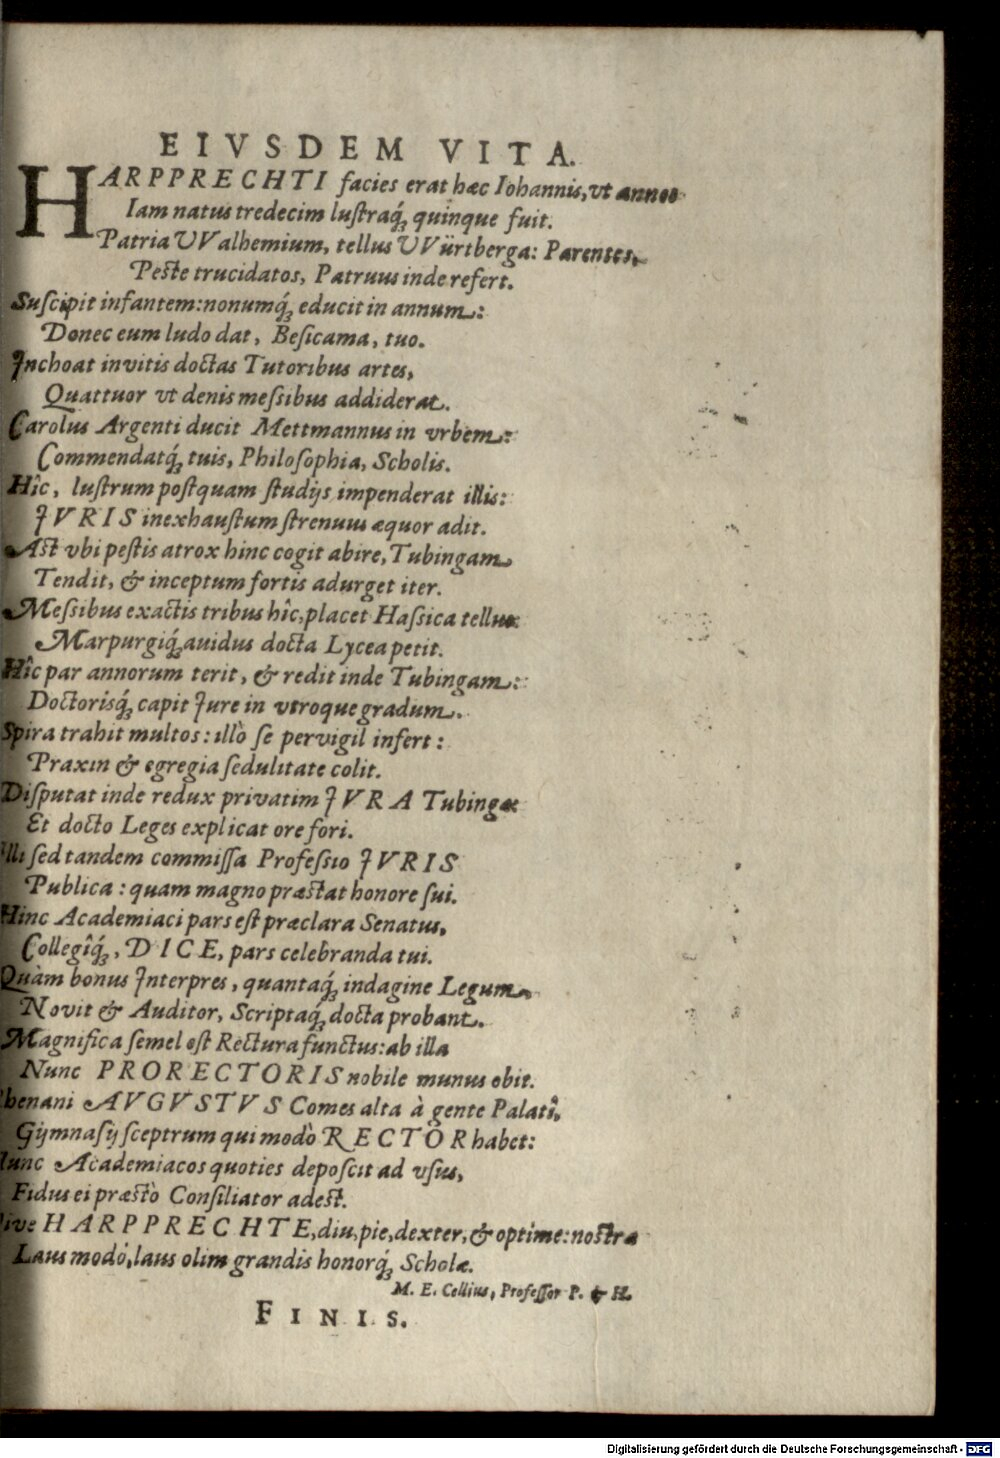 EIVSDEM VITA.
HARPPRECHTI facies erat hæc Iohannis, vt annos
Iam natus tredecim luſtraq́ꝫ quinque fuit.
Patria UValhemium, tellus UVürtberga: Parentes,
Peſte trucidatos, Patruus inde refert.
Suſcipit infantem: nonumq́ꝫ educit in annum:
Donec eum ludo dat, Beſicama, tuo.
Inchoat invitis doctas Tutoribus artes,
Quattuor vt denis meſsibus addiderat.
Carolus Argenti ducit Mettmannus in vrbem:
Commendatq́ꝫ tuis, Philoſophia, Scholis.
Hîc, luſtrum poſtquam ſtudijs impenderat illis:
IVRIS inexhauſtum ſtrenuus æquor adit.
Aſt vbi peſtis atrox hinc cogit abire, Tubingam
Tendit, & inceptum fortis adurget iter.
Meſsibus exactis tribus hîc, placet Haſsica tellus:
Marpurgiq́ꝫ avidus docta Lycea petit.
Hîc par annorum terit, & redit inde Tubingam:
Doctorisq́ꝫ capit Iure in vtroque gradum.
Spira trahit multos: illò ſe pervigil infert:
Praxin & egregia ſedulitate colit.
Diſputat inde redux privatim IVRA Tubingæ
Et docto Leges explicat ore fori.
Illi ſed tandem commiſſa Profeſsio IVRIS
Publica: quam magno præſtat honore ſui.
Hinc Academiaci pars eſt præclara Senatus,
Collegîq́ꝫ, DICE, pars celebranda tui.
Quàm bonus Interpres, quantaq́ꝫ indagine Legum,
Novit & Auditor, Scriptaq́ꝫ docta probant.
Magnifica ſemel eſt Rectura functus: ab illa
Nunc PRORECTORIS nobile munus obit.
henani AVGVSTVS Comes alta à gente Palatî,
Gymnaſij ſceptrum qui modò RECTOR habet:
unc Academiacos quoties depoſcit ad vſus,
Fidus ei præſtò Conſiliator adeſt.
ive HARPPRECHTE, diu, pie, dexter, & optime: noſtra
Laus modò, laus olim grandis honorq́ꝫ Scholæ.
M. E. Cellius, Profeſſor P. & H.
FINIS.
Digitalisierung gefördert durch die Deutsche Forschungsgemeinschaft - DFG